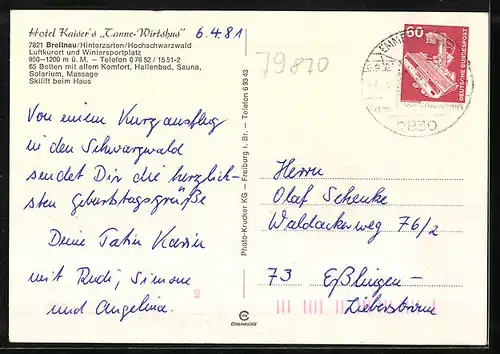 Hotel Kaiser's „Tanne-Wirtshus"
7821 Breitnau/Hinterzarten/Hochschwarzwald
Luftkurort und Wintersportplatz
950–1200 m ü. M. – Telefon 0 76 52 / 15 51-2
65 Betten mit allem Komfort, Hallenbad, Sauna,
Solarium, Massage
Skilift beim Haus
6.4.81
Von einem Kurzausflug
in den Schwarzwald
sendet Dir die herzlich-
sten Geburtstagsgrüße
Deine Tatin Karin
mit Rudi, Simone
und Angelina.
Photo-Krucker KG – Freiburg i. Br. – Telefon 6 93 43
79870
60
DEUTSCHE BUNDESPOST
7830
Herrn
Olaf Schenke
Waldackerweg 76/2
73 Eßlingen-
Liebersbronn
9